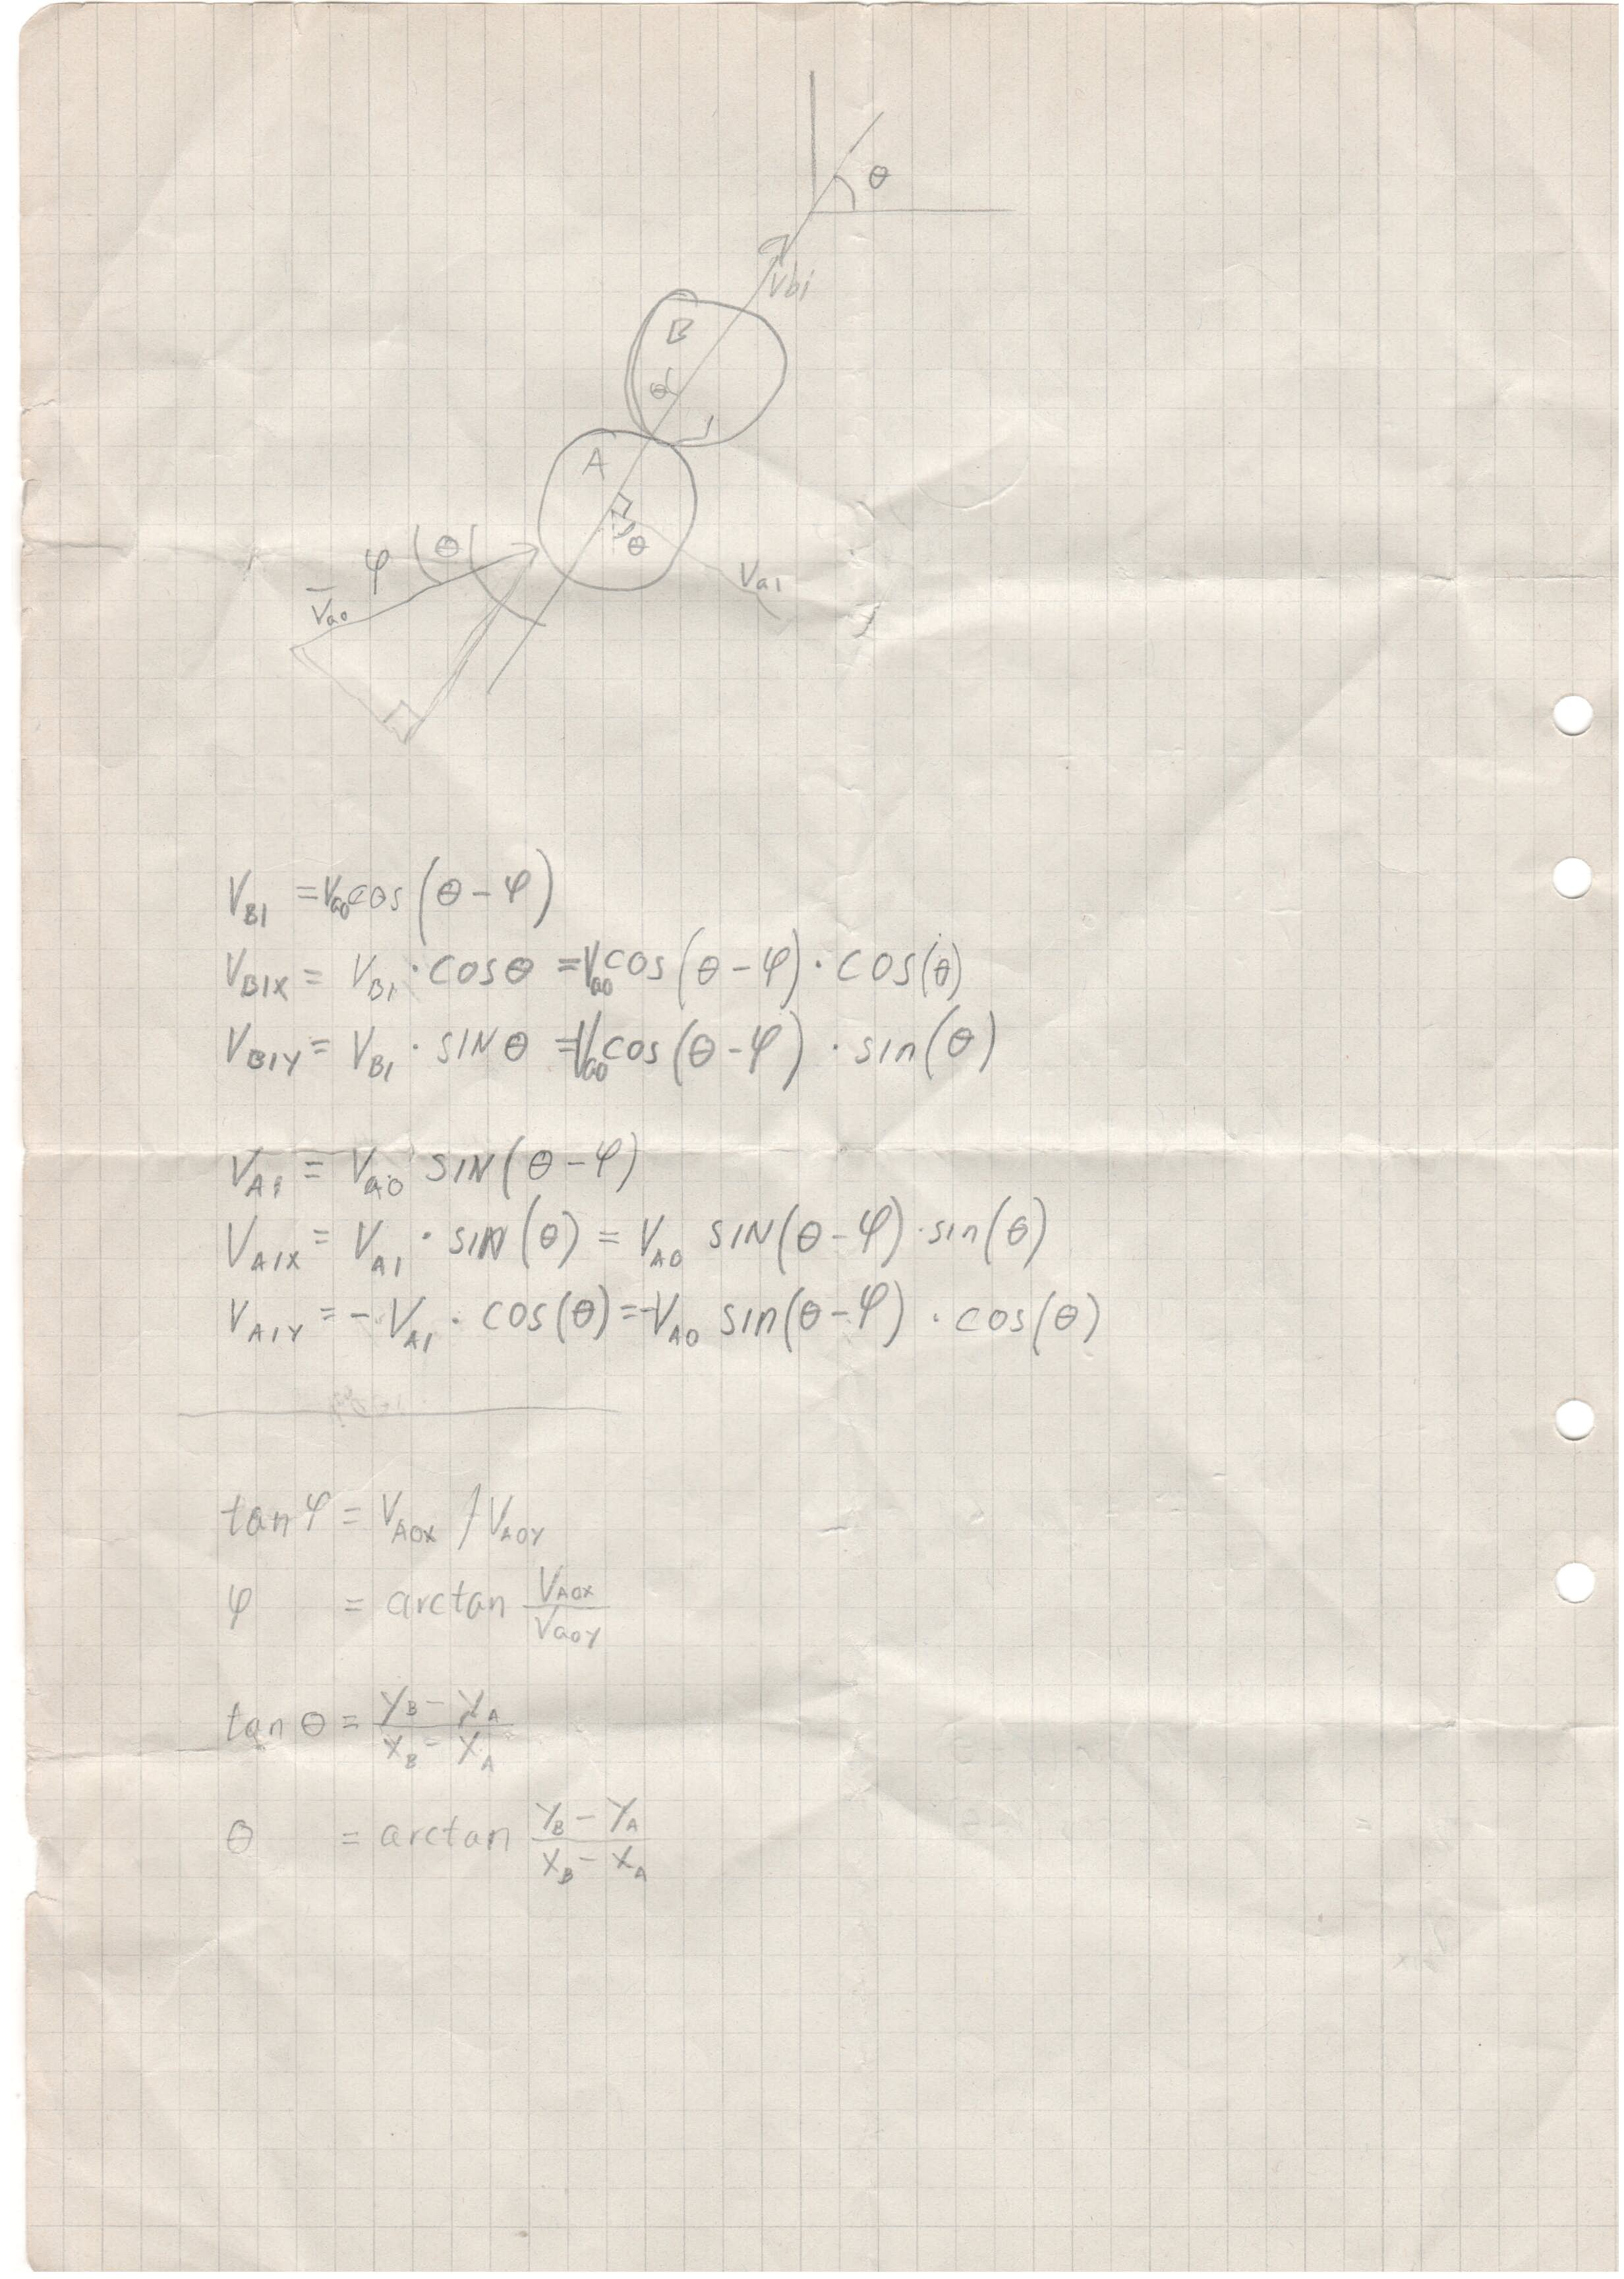 θ
Vbi
B
θ
A
θ
φ
θ
V̅a0
Va1
V_B1 = V_a0 cos(θ - φ)
V_B1X = V_B1 · COSθ = V_a0 cos(θ - φ) · cos(θ)
V_B1Y = V_B1 · SINθ = V_a0 cos(θ - φ) · sin(θ)
V_A1 = V_a0 SIN(θ - φ)
V_A1X = V_A1 · sin(θ) = V_A0 SIN(θ - φ) · sin(θ)
V_A1Y = - V_A1 · cos(θ) = - V_A0 sin(θ - φ) · cos(θ)
tan φ = V_A0X / V_A0Y
φ = arctan V_A0X / V_a0Y
tan θ = (Y_B - Y_A) / (X_B - X_A)
θ = arctan (Y_B - Y_A) / (X_B - X_A)